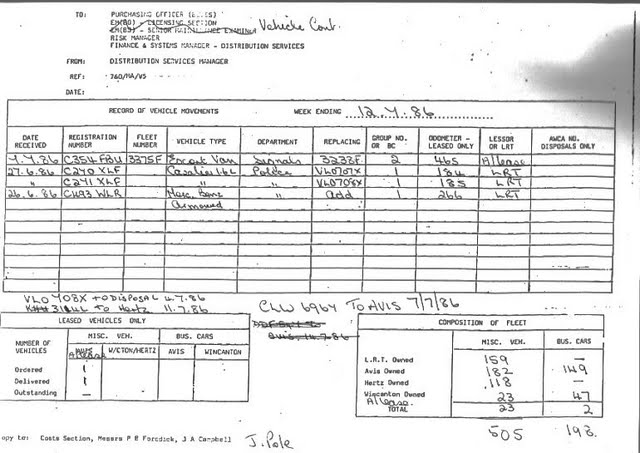 TO: PURCHASING OFFICER
LICENSING SECTION Vehicle Cont.
RISK MANAGER
FINANCE & SYSTEMS MANAGER - DISTRIBUTION SERVICES
FROM: DISTRIBUTION SERVICES MANAGER
REF: 760/MA/VS
DATE:
RECORD OF VEHICLE MOVEMENTS WEEK ENDING 12.7.86
DATE RECEIVED REGISTRATION NUMBER FLEET NUMBER VEHICLE TYPE DEPARTMENT REPLACING GROUP NO. OR BC ODOMETER - LEASED ONLY LESSOR OR LRT AWCA NO. DISPOSALS ONLY
7.7.86 C354 FBU 3375F Escort Van Signals 3233F 2 465 Allease
27.6.86 C240 XLF Cavalier 1.6L Police VLO707X 1 184 LRT
" C241 XLF " " VLO708X 1 185 LRT
26.6.86 C493 WLR Merc. Benz " add 1 266 LRT
Armoured
VLO 708X to DISPOSAL 4.7.86
TO Hertz 11.7.86
CLW 696Y TO AVIS 7/7/86
AVIS, 14.7.86
LEASED VEHICLES ONLY
MISC. VEH. BUS. CARS
NUMBER OF VEHICLES Allease W/CTON/HERTZ AVIS WINCANTON
Ordered 1
Delivered 1
Outstanding —
COMPOSITION OF FLEET
MISC. VEH. BUS. CARS
L.R.T. Owned 159 —
Avis Owned 182 149
Hertz Owned 118 —
Wincanton Owned 23 47
Allease 23 2
TOTAL
505 198
opy to: Costs Section, Messrs P E Fordick, J A Campbell J. Pole